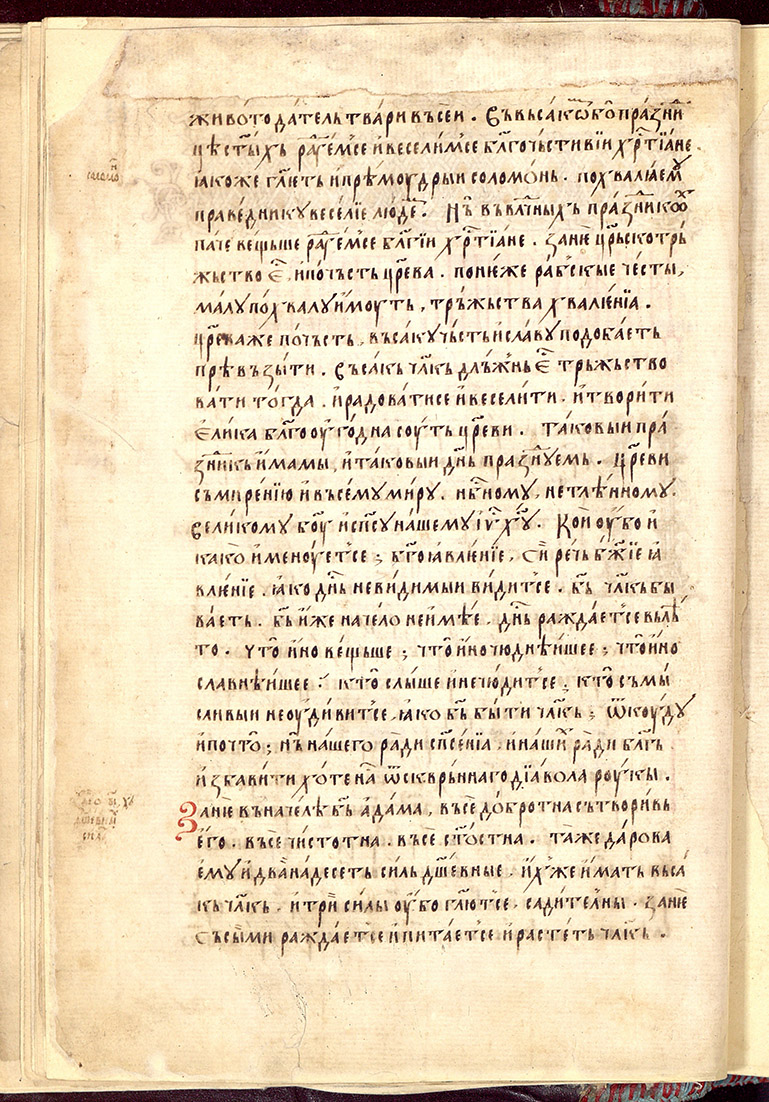 живо́тодатель тва́ри въсеи . Въ въса́ком̾ бо пра́зни
цѣ ст҃ы́хъ ра́дꙋемсе и҆ веселимсе бл҃гочьстивїи хр҃тїа́не .
ꙗ҆коже гл҃еть и҆ прѣмоу́дрыи соломо́нь . похвалꙗ́ем
пра́ведникꙋ веселїе лю́дем . Нь въ влⷣчныхь пра́зникох
па́че вещьше ра́дꙋемсе бл҃гїи хр҃тїа́не . зане црⷭ҇ко трь
жьство еⷭ҇ . и҆ по́чьсть цр҃ева . поне́же ра́бские че́сты ,
ма́лꙋ похва́лꙋ и҆моуть , трьжьства хвале́нїа .
цр҃ева же по́чьсть , въса́кꙋ чьсть и҆ сла́вꙋ подоба́еть
прѣвъзы́ти . Въса́кь чл҃кь дльжнь еⷭ҇ трьжьство
ва́ти то́гда . и҆ ра́довати се и҆ весели́ти . и҆ твори́ти
е҆ли́ка бл҃гооуго́дна соуть цр҃еви . Та́ковыи пра́
зникь и҆мамы , и҆ та́ковыи дн҃ь пра́знꙋемь . цр҃еви
съмире́нїю и҆ въсе́мꙋ ми́рꙋ . нбⷭ҇номꙋ , нетлѣ́нномꙋ .
вели́комꙋ бо҃у и҆ сп҃сꙋ на́шемꙋ і҆ѵ҃ хр҃ꙋ . Кои́ оу҆́бо и҆
како̀ и҆менꙋет се ; бг҃оꙗвле́нїе , си рѣчь бж҃їе ꙗ
вле́нїе . ꙗ҆ко дн҃ь неви́димыи ви́дит се . бг҃ь чл҃кь бы
ва́еть . бг҃ь и҆́же начело не и҆мѣ́е . дн҃ь ражда́ет се вь лѣ
то . Что и҆но вещьше ; что и҆но чюднѣ́ишее ; что и҆но
славнѣ́ишее : кто слы́ше и҆ не чю́дит се ; кто съмы́
сливыи не оу҆ди́вит се , ꙗ҆ко бг҃ь бы́ти чл҃кь ; ѿкоу́дꙋ
и҆ почто̀ ; нь на́шего ра́ди сп҃се́нїа . и҆ на́ших ра́ди бл҃гь .
и҆збавити хо́те на́с ѿ сквръннаго дїа́вола роу́кы .
Зане въ наче́лѣ бг҃ь а҆да́ма , въсе до́бротна сътвори́вь
е҆го̀ . въсе чи́стотна . въсе ст҃остна . та́же да́рова
е҆мꙋ и҆ два́надесеть силь дш҃евные . и҆́хже и҆мать въса́
кь чл҃кь . и҆ три́ си́лы оу҆бо гл҃ют се , сади́телны . зане
съ сы́ми ражда́ет се и҆ пита́ет се и҆ расте́ть чл҃кь .